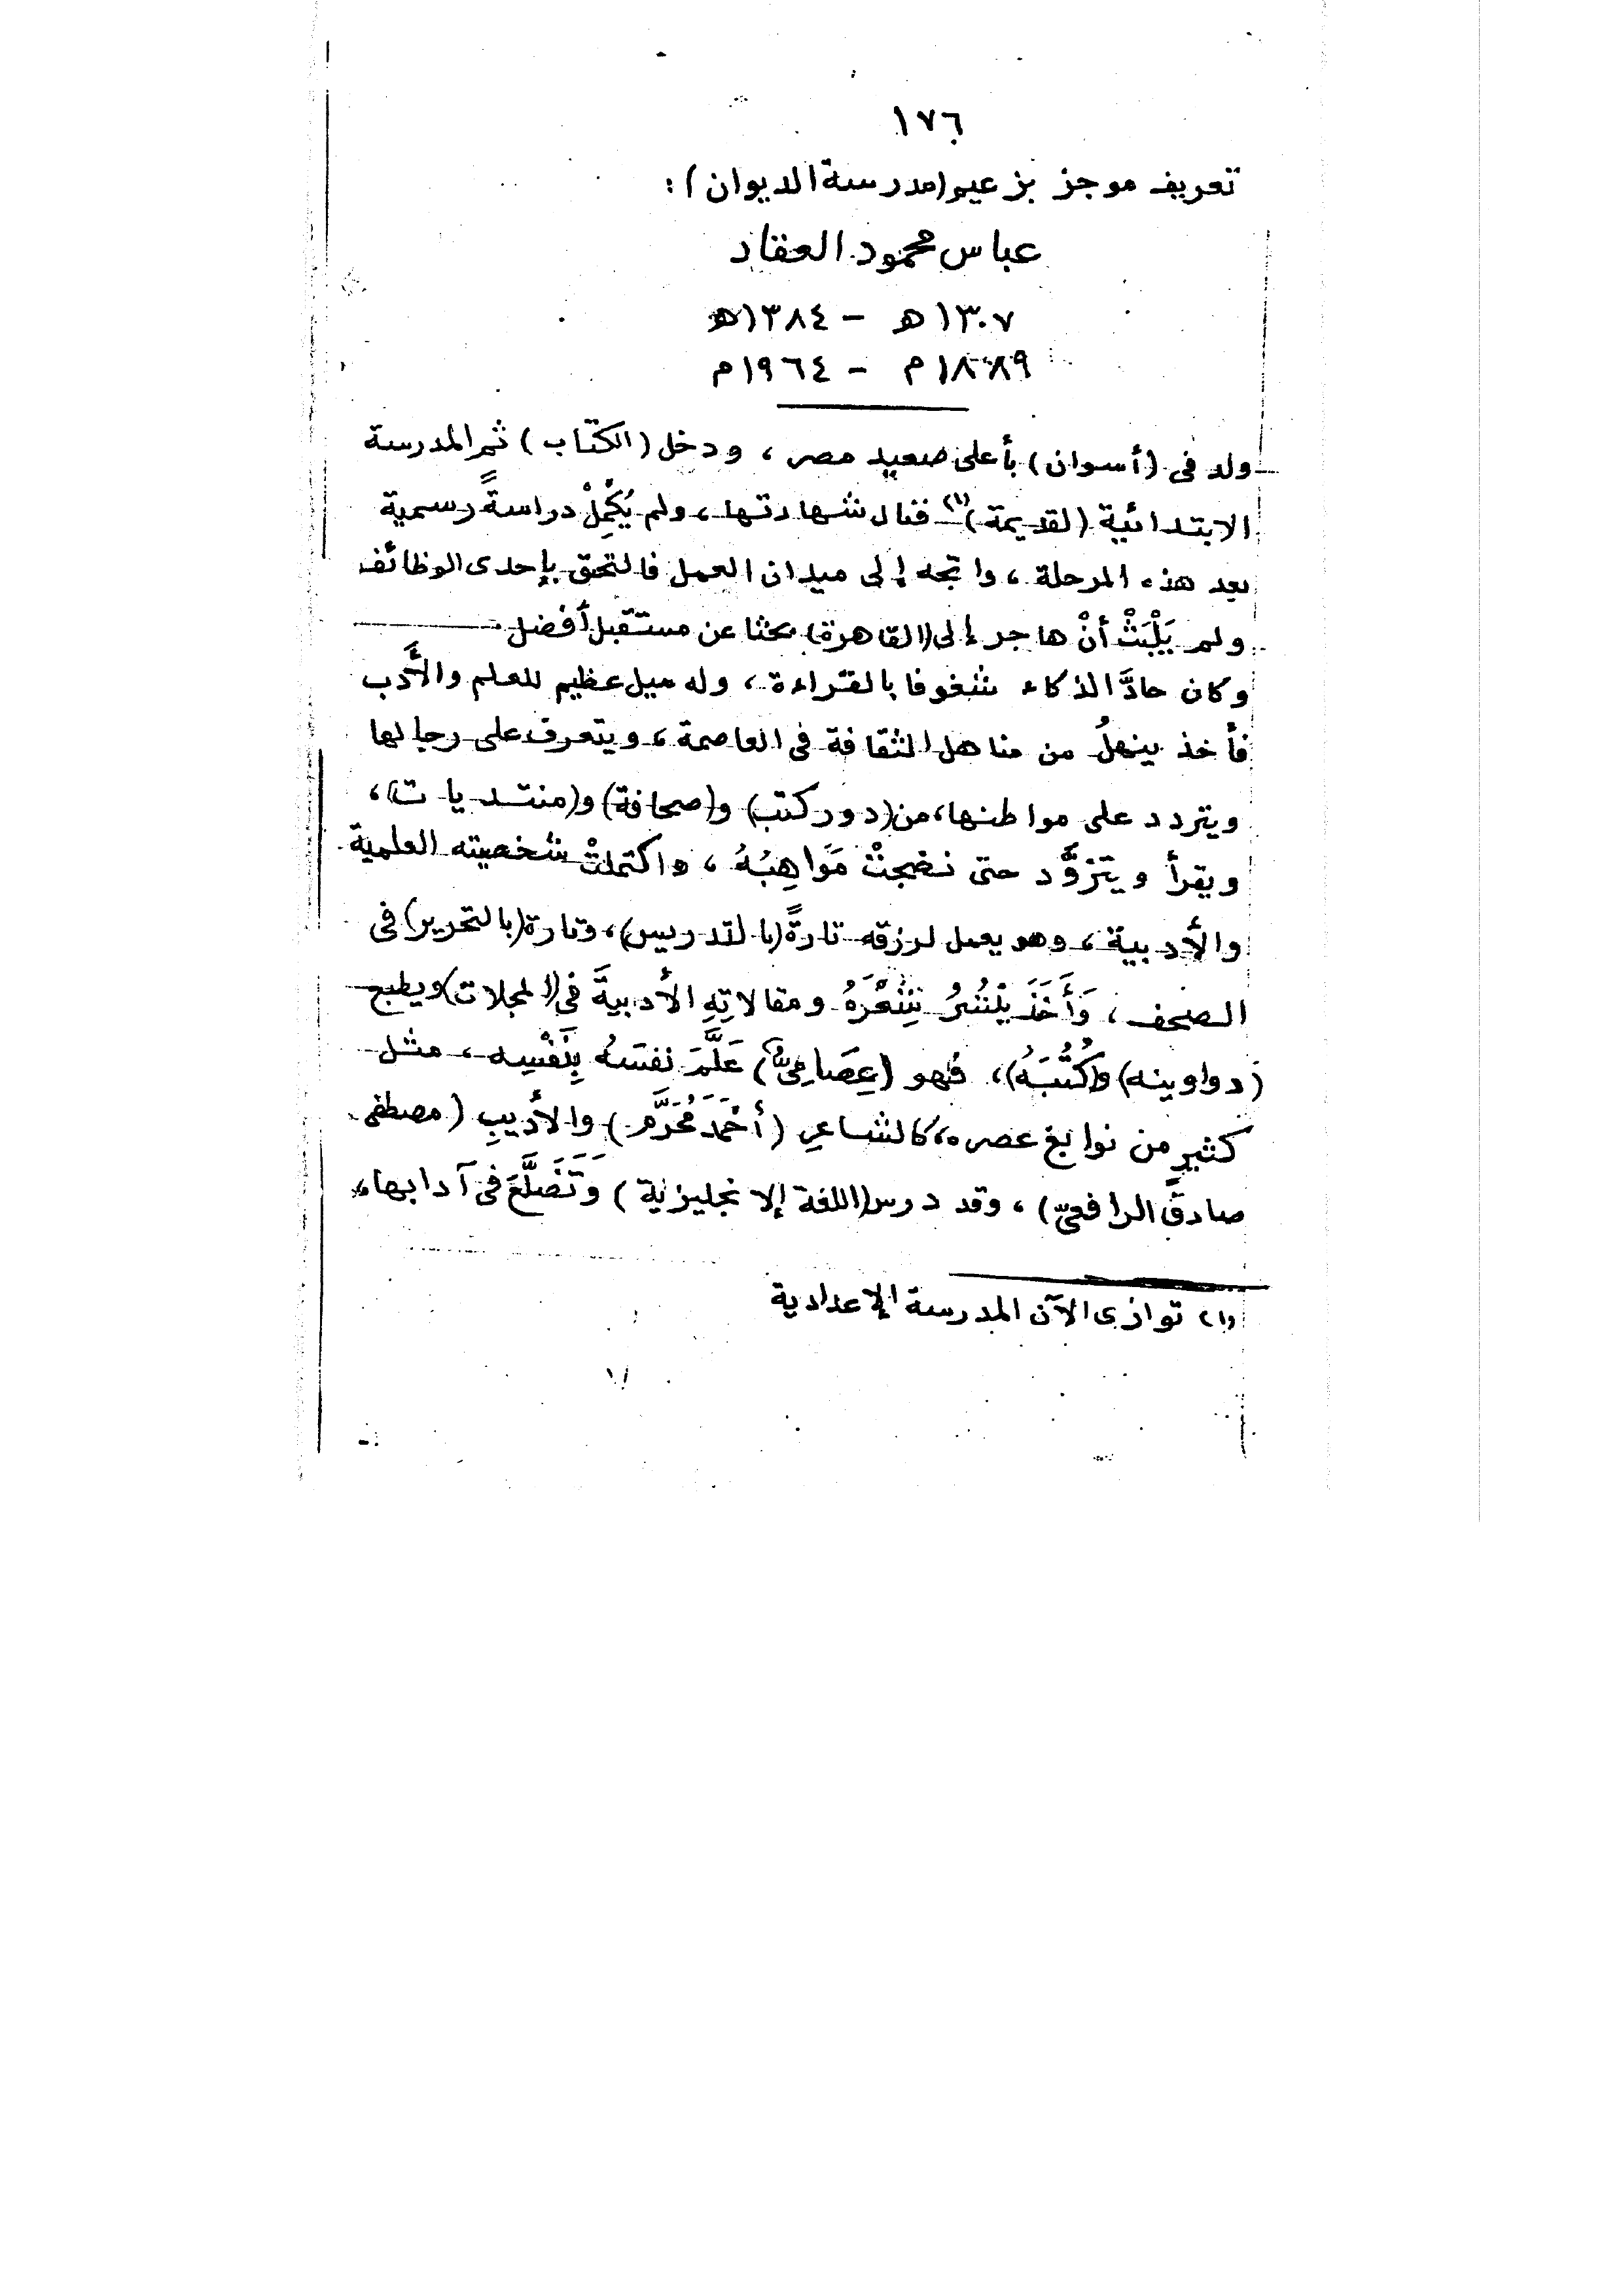 ١٧٦
تعريف موجز بزعيم (مدرسة الديوان) :
عباس محمود العقاد
١٣٠٧ه – ١٣٨٤ه
١٨٨٩م – ١٩٦٤م
ولد فى (أسوان) بأعلى صعيد مصر ، ودخل (الكتّاب) ثم المدرسة
الابتدائية (القديمة)(١) فنال شهادتها ، ولم يُكْمِلْ دراسةً رسمية
بعد هذه المرحلة ، واتجه إلى ميدان العمل فالتحق بإحدى الوظائف
ولم يَلْبَثْ أنْ هاجر إلى (القاهرة) بحثا عن مستقبل أفضل .
وكان حادَّ الذكاء شغوفا بالقراءة ، وله ميل عظيم للعلم والأَدب
فأخذ ينهلُ من مناهل الثقافة فى العاصمة ، ويتعرف على رجالها
ويتردد على مواطنها ، من (دور كتب) و(صحافة) و(منتديات) ،
ويقرأ ويتزوَّد حتى نضجتْ مَوَاهِبُهُ ، واكتملتْ شخصيته العلمية
والأدبية ، وهو يعمل لرزقه تارةً (بالتدريس) ، وتارة (بالتحرير) فى
الصحف ، وَأَخَذَ يَنْشُرُ شِعْرَهُ ومقالاتِهِ الأدبيةَ فى (المجلات) ويطبع
(دواوينه) و(كُتُبَهُ) ، فهو (عِصَامِىٌّ) عَلَّمَ نفسَهُ بِنَفْسِه ، مثل
كثيرٍ من نوابغ عصره ، كالشاعرِ (أَحْمَدَ مُحَرَّم) والأديبِ (مصطفى
صادق الرافعىّ) ، وقد درس (اللغة الإنجليزية) وَتَضَلَّعَ فى آدابها ،
(١) توازى الآن المدرسة الإعدادية